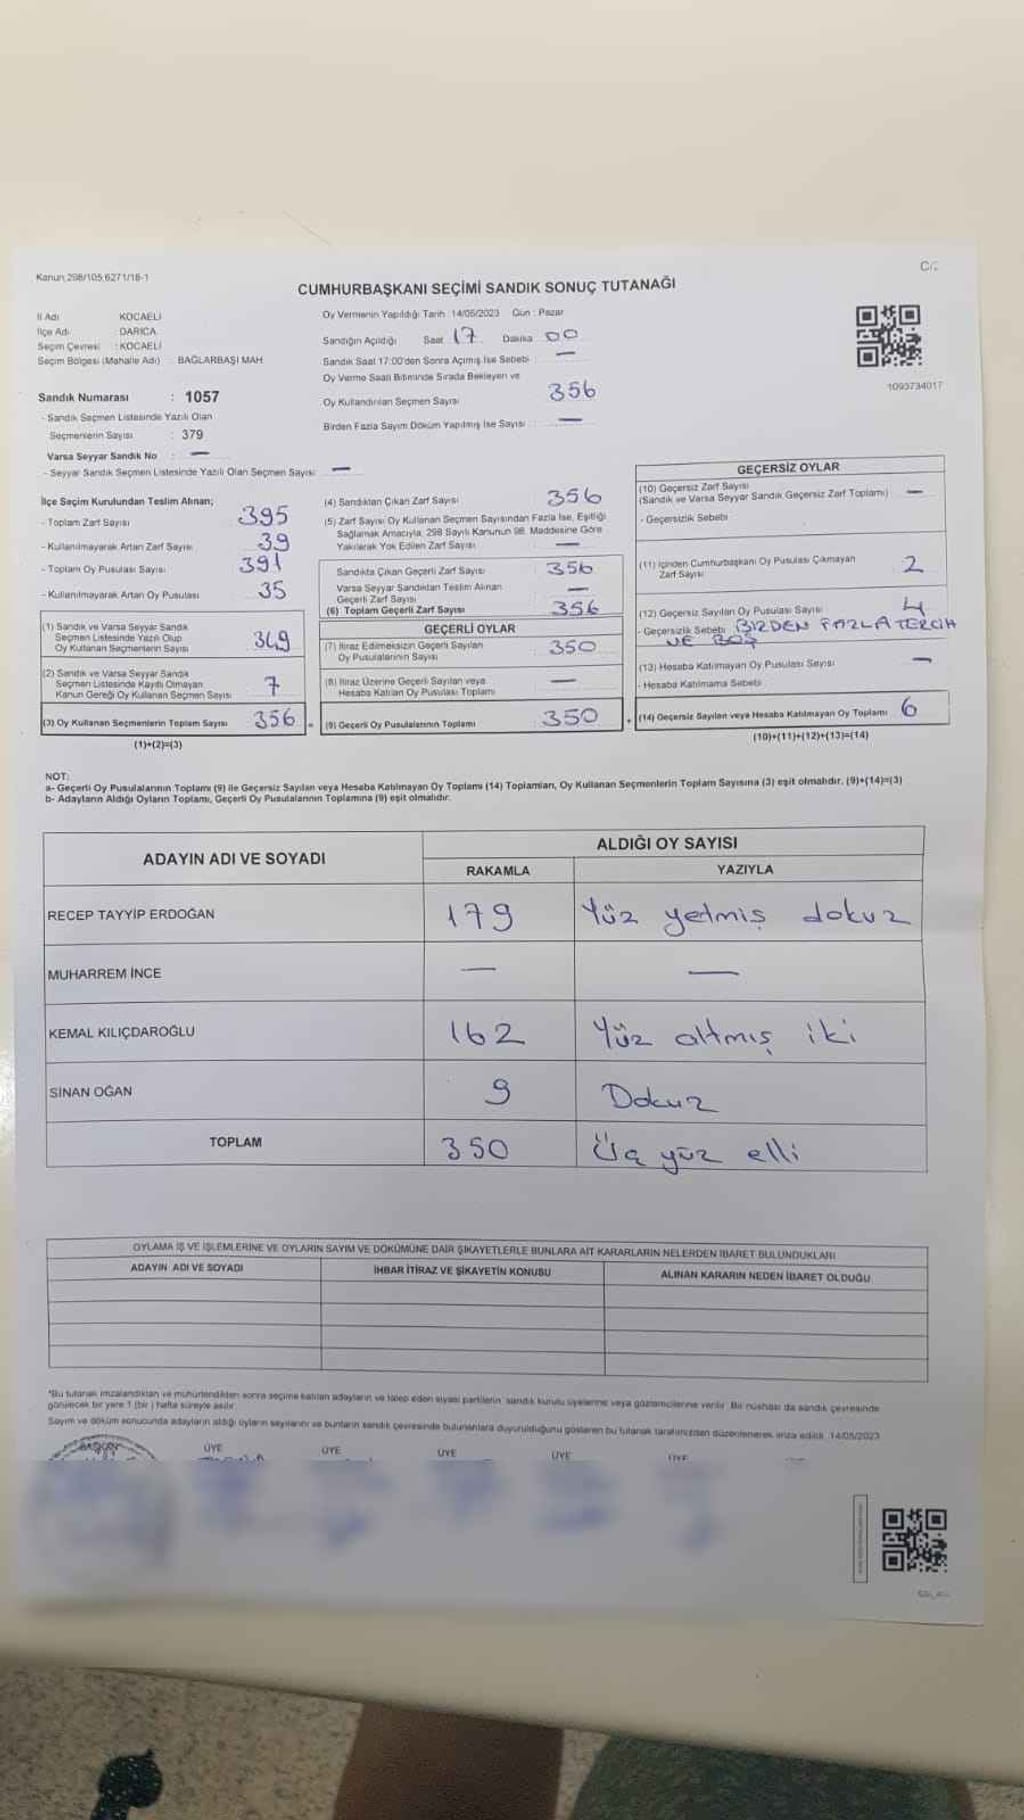 Kanun 298/105,6271/18-1
CUMHURBAŞKANI SEÇİMİ SANDIK SONUÇ TUTANAĞI
İl Adı : KOCAELİ
İlçe Adı : DARICA
Seçim Çevresi : KOCAELİ
Seçim Bölgesi (Mahalle Adı) : BAĞLARBAŞI MAH.
Sandık Numarası : 1057
- Sandık Seçmen Listesinde Yazılı Olan
Seçmenlerin Sayısı : 379
Varsa Seyyar Sandık No : —
- Seyyar Sandık Seçmen Listesinde Yazılı Olan Seçmen Sayısı: —
Oy Vermenin Yapıldığı Tarih : 14/05/2023 Gün : Pazar
Sandığın Açıldığı Saat 17 Dakika 00
Sandık Saat 17:00'den Sonra Açılmış İse Sebebi : —
Oy Verme Saati Bitiminde Sırada Bekleyen ve
Oy Kullandırılan Seçmen Sayısı 356
Birden Fazla Sayım Döküm Yapılmış İse Sayısı : —
1093734017
İlçe Seçim Kurulundan Teslim Alınan;
- Toplam Zarf Sayısı 395
- Kullanılmayarak Artan Zarf Sayısı 39
- Toplam Oy Pusulası Sayısı 391
- Kullanılmayarak Artan Oy Pusulası 35
(1) Sandık ve Varsa Seyyar Sandık
Seçmen Listesinde Yazılı Olup
Oy Kullanan Seçmenlerin Sayısı 349
(2) Sandık ve Varsa Seyyar Sandık
Seçmen Listesinde Kayıtlı Olmayan
Kanun Gereği Oy Kullanan Seçmen Sayısı 7
(3) Oy Kullanan Seçmenlerin Toplam Sayısı 356
(1)+(2)=(3)
(4) Sandıktan Çıkan Zarf Sayısı 356
(5) Zarf Sayısı Oy Kullanan Seçmen Sayısından Fazla İse, Eşitliği
Sağlamak Amacıyla, 298 Sayılı Kanunun 98. Maddesine Göre
Yakılarak Yok Edilen Zarf Sayısı —
Sandıkta Çıkan Geçerli Zarf Sayısı 356
Varsa Seyyar Sandıktan Teslim Alınan
Geçerli Zarf Sayısı —
(6) Toplam Geçerli Zarf Sayısı 356
GEÇERLİ OYLAR
(7) İtiraz Edilmeksizin Geçerli Sayılan
Oy Pusulalarının Sayısı 350
(8) İtiraz Üzerine Geçerli Sayılan veya
Hesaba Katılan Oy Pusulası Toplamı —
(9) Geçerli Oy Pusulalarının Toplamı 350
GEÇERSİZ OYLAR
(10) Geçersiz Zarf Sayısı
(Sandık ve Varsa Seyyar Sandık Geçersiz Zarf Toplamı) —
- Geçersizlik Sebebi
(11) İçinden Cumhurbaşkanı Oy Pusulası Çıkmayan
Zarf Sayısı 2
(12) Geçersiz Sayılan Oy Pusulası Sayısı 4
- Geçersizlik Sebebi BİRDEN FAZLA TERCİH
VE BOŞ
(13) Hesaba Katılmayan Oy Pusulası Sayısı —
- Hesaba Katılmama Sebebi
(14) Geçersiz Sayılan veya Hesaba Katılmayan Oy Toplamı 6
(10)+(11)+(12)+(13)=(14)
NOT:
a- Geçerli Oy Pusulalarının Toplamı (9) ile Geçersiz Sayılan veya Hesaba Katılmayan Oy Toplamı (14) Toplamları, Oy Kullanan Seçmenlerin Toplam Sayısına (3) eşit olmalıdır. (9)+(14)=(3)
b- Adayların Aldığı Oyların Toplamı, Geçerli Oy Pusulalarının Toplamına (9) eşit olmalıdır.
ADAYIN ADI VE SOYADI
ALDIĞI OY SAYISI
RAKAMLA YAZIYLA
RECEP TAYYİP ERDOĞAN 179 Yüz yetmiş dokuz
MUHARREM İNCE — —
KEMAL KILIÇDAROĞLU 162 Yüz altmış iki
SİNAN OĞAN 9 Dokuz
TOPLAM 350 Üç yüz elli
OYLAMA İŞ VE İŞLEMLERİNE VE OYLARIN SAYIM VE DÖKÜMÜNE DAİR ŞİKAYETLERLE BUNLARA AİT KARARLARIN NELERDEN İBARET BULUNDUKLARI
ADAYIN ADI VE SOYADI İHBAR İTİRAZ VE ŞİKAYETİN KONUSU ALINAN KARARIN NEDEN İBARET OLDUĞU
*Bu tutanak imzalandıktan ve mühürlendikten sonra seçime katılan adayların ve talep eden siyasi partilerin sandık kurulu üyelerine veya gözlemcilerine verilir. Bir nüshası da sandık çevresinde
görülecek bir yere 1 (bir) hafta süreyle asılır.
Sayım ve döküm sonucunda adayların aldığı oyların sayılarını ve bunların sandık çevresinde bulunanlara duyurulduğunu gösteren bu tutanak tarafımızdan düzenlenerek imza edildi. 14/05/2023
ÜYE ÜYE ÜYE ÜYE ÜYE